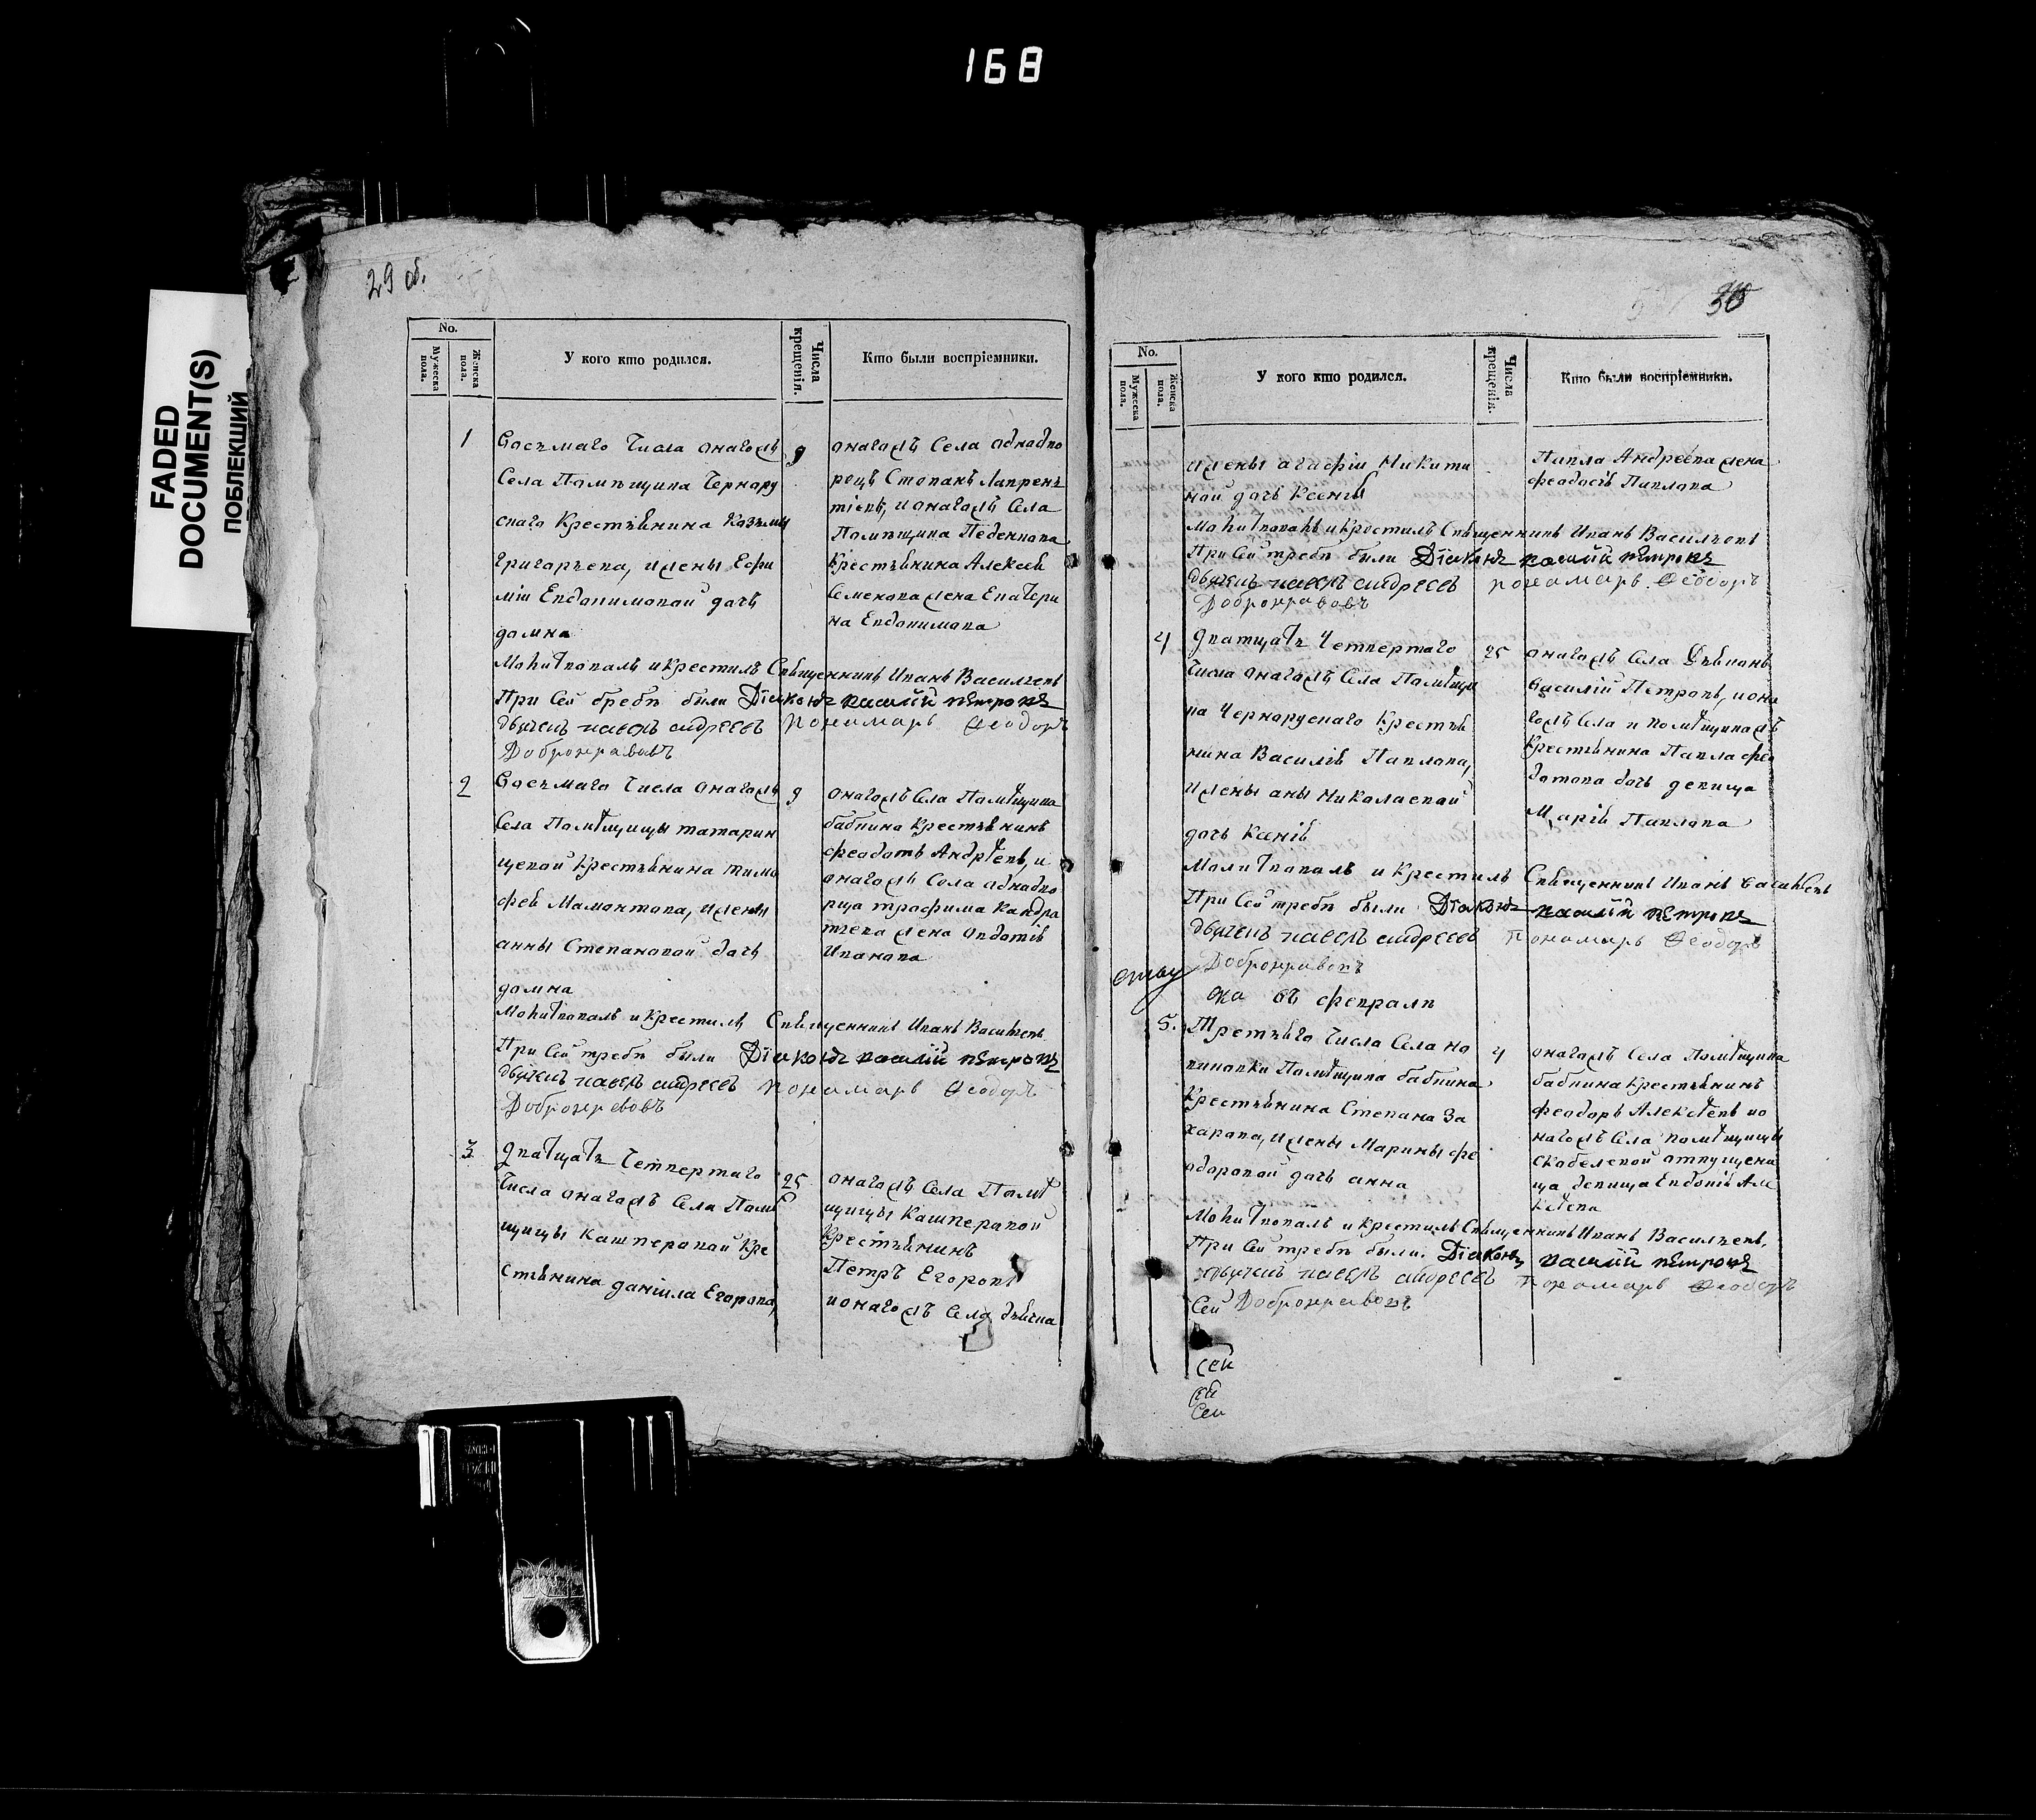 168
FADED
DOCUMENT(S)
ПОБЛЕКШИЙ
29 об.
No.
Мужеска пола.
Женска пола.
У кого кто родился.
Числа крещенія.
Кто были воспріемники.
1
Восъмаго Числа онагожъ
Села Помѣщика Чернору
скаго Крестьянина Козьмы
Григоръева, Ижены Ефи
міи Евдокимовой дочь
домна
9
онагожъ Села однодво
рецъ Стопанъ Лаврен
тіевъ, ионагожъ Села
Помѣщика
Крестьянина Алексѣя
Семенова жена Екатери
на Евдокимова
Молитвовалъ икрестилъ Священникъ Иванъ Василъевъ
При Сей требѣ были Діаконъ василій петровъ
дьячекъ павелъ андреевъ пономарь Ѳеодоръ
Добронравовъ
2
Восъмаго Числа онагожъ
Села Помѣщицы татарин
цевой Крестьянина тимо
фея Мамонтова, Ижены
анны Степановой дочь
домна
9
онагожъ Села Помѣщика
бабкина Крестьянинъ
феодотъ Андрѣевъ, и
онагожъ Села однодво
рца трофима Кандра
тъева жена
Иванова
Молитвовалъ икрестилъ Священникъ Иванъ Василъевъ
При Сей требѣ были Діаконъ василій петровъ
дьячекъ павелъ андреевъ пономарь Ѳеодоръ
Доброправовъ
3
Дватцатъ Четвертаго
Числа онагожъ Села Помѣ
щицы Кашперовой Кре
стьянина даніила Егорова,
25
онагожъ Села Помѣ
щицы Кашперовой
Крестьянинъ
Петръ Егоровъ
ионагожъ Села дьячка
30
No.
Мужеска пола.
Женска пола.
У кого кто родился.
Числа крещенія.
Кто были воспріемники.
Ижены агафіи Никити
ной дочь Ксенія
Павла Андреева жена
феодосія Павлова
Молитвовалъ икрестилъ Священникъ Иванъ Василъевъ
При Сей требѣ были Діаконъ василій петровъ
дьячекъ павелъ андреевъ пономарь Ѳеодоръ
Доброправовъ
4
Дватцать Четвертаго
Числа онагожъ Села Помѣщи
ка Чернорускаго Крестья
нина Василія Павлова,
Ижены аны Николаевой
дочь Ксенія
25
онагожъ Села Діаконъ
Василій Петровъ, иона
гожъ Села и помѣщикажъ
Крестьянина Павла фео
дотова дочь девица
Марія Павлова
Молитвовалъ и Крестилъ Священникъ Иванъ Василъевъ
При Сей требѣ были Діаконъ василій петровъ
дьячекъ павелъ андреевъ пономарь Ѳеодоръ
Доброправовъ
въ февралѣ
5.
Третьяго Числа Села но
виковки Помѣщика бабкина
Крестьянина Степана За
харова, ижены Марины фе
одоровой дочь анна
4
онагожъ Села Помѣщика
бабкина Крестьянинъ
феодоръ Алексѣевъ ио
нагожъ Села помѣщицы
Скобелевой отпущени
ца девица Евдокія Але
ксѣева
Молитвовалъ икрестилъ Священникъ Иванъ Василъевъ.
При Сей требѣ были. Діаконъ василій петровъ
дьячекъ павелъ андреевъ пономарь Ѳеодоръ
Сей Доброправовъ
сей
сей
Сей